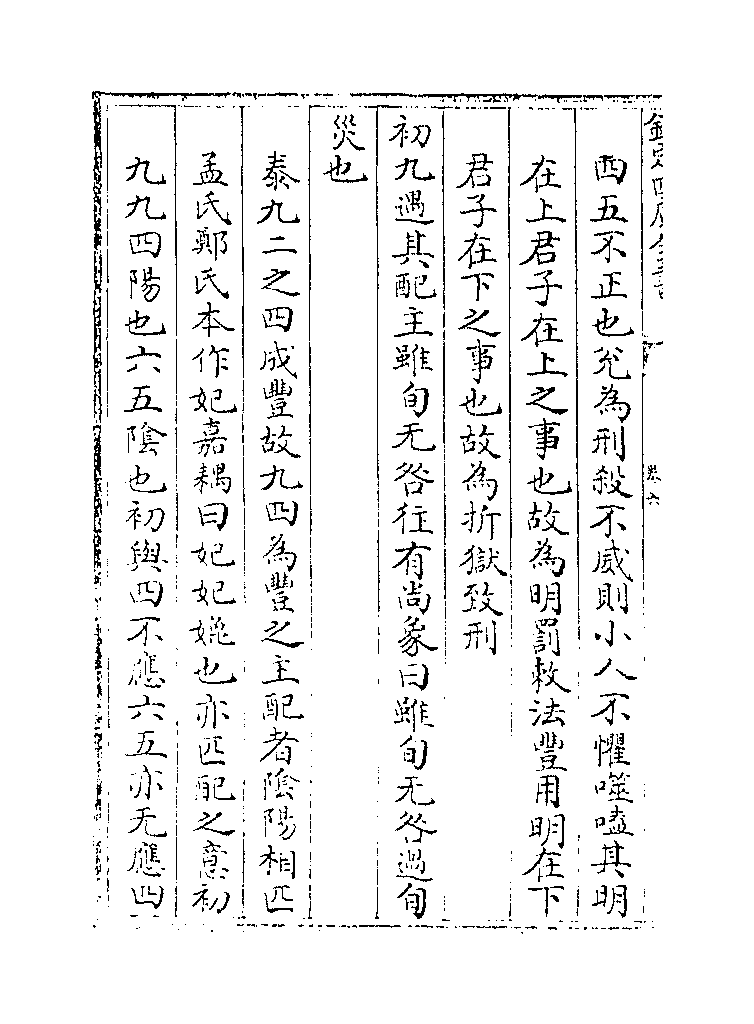 欽定四庫全書
卷六
四五不正也兊為刑殺不威則小人不懼噬嗑其明
在上君子在上之事也故為明罰敕法豐用明在下
君子在下之事也故為折獄致刑
初九遇其配主雖旬无咎往有尚象曰雖旬无咎過旬
災也
泰九二之四成豐故九四為豐之主配者陰陽相匹
孟氏鄭氏本作妃嘉耦曰妃妃媲也亦匹配之意初
九九四陽也六五陰也初與四不應六五亦无應四